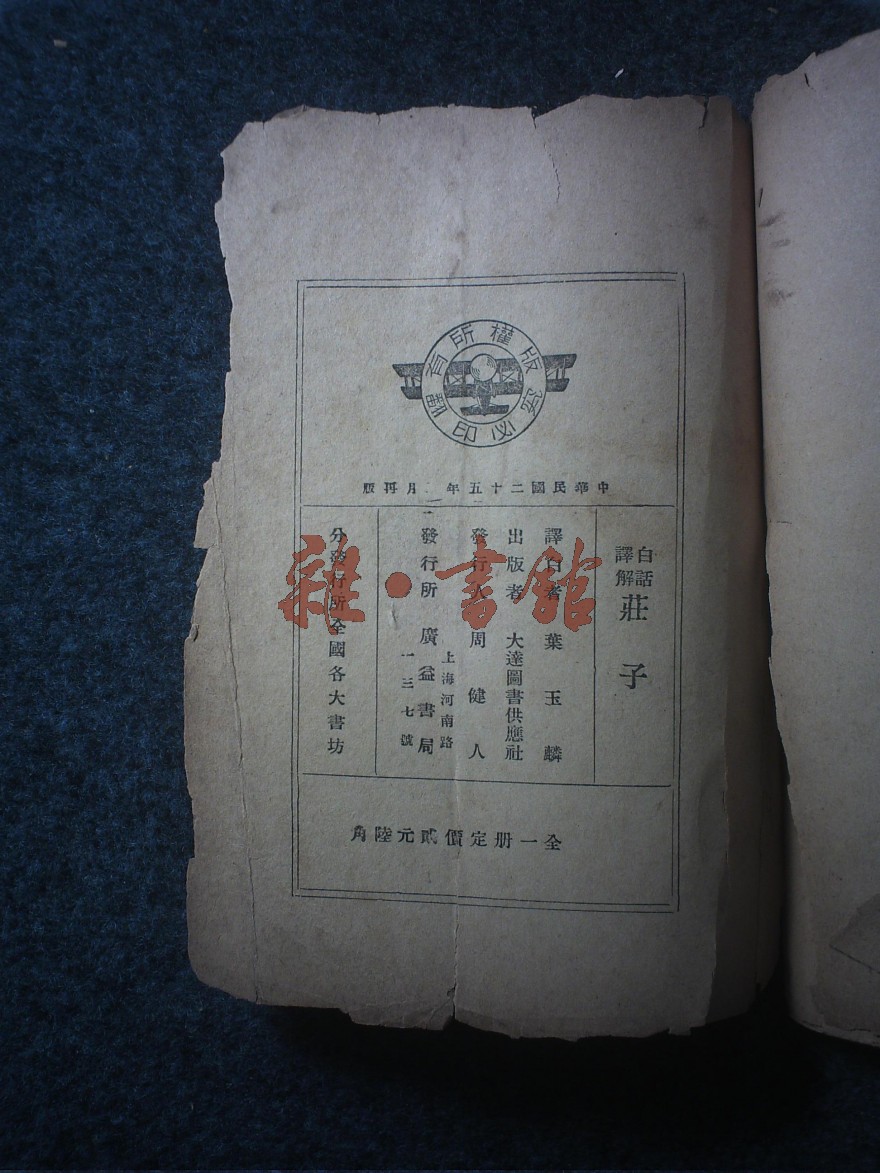 版權所有
翻印必究
中華民國二十五年 月再版
白話譯解
莊子
譯白者 葉玉麟
出版者 大達圖書供應社
發行人 周健人
發行所 廣益書局
上海河南路
一三七號
分發行所全國各大書坊
全一册定價貳元陸角
雜·書館